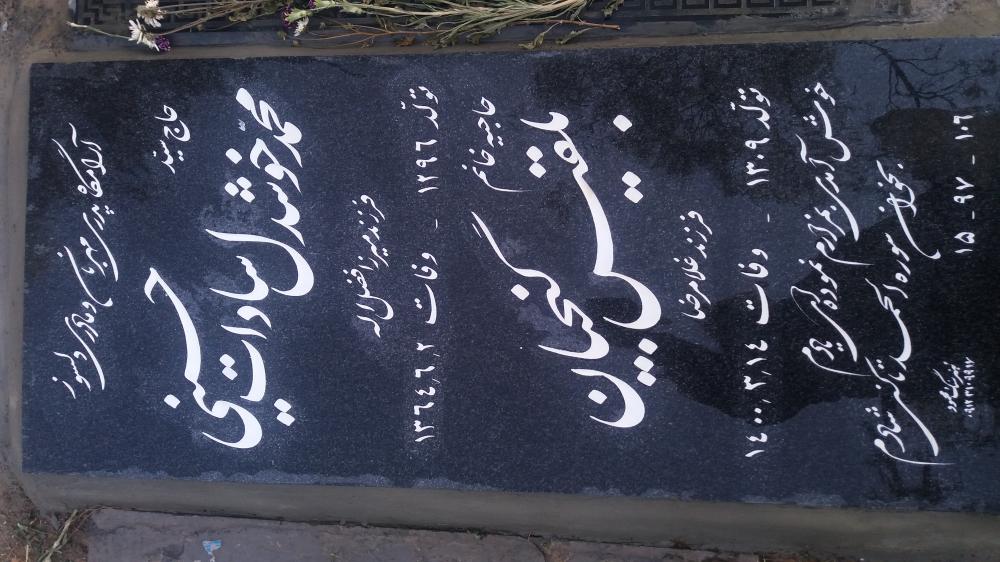 آرامگاه پدری مهربان و مادری دلسوز
حاج سید
محمد خوشدل سادات حسینی
فرزند میرزا فضل اله
تولد ۱۲۹۶ - وفات ۱۳۶۴/۶/۲
حاجیه خانم
بلقیس گنجیان
فرزند غلامرضا
تولد ۱۳۰۹ - وفات ۱۴۰۰/۳/۱۴
خوش آمدی بمزارم نموده ای یادم
بخوان سوره الحمد تا کنی شادم
۱۰۶ - ۹۷ - ۱۵